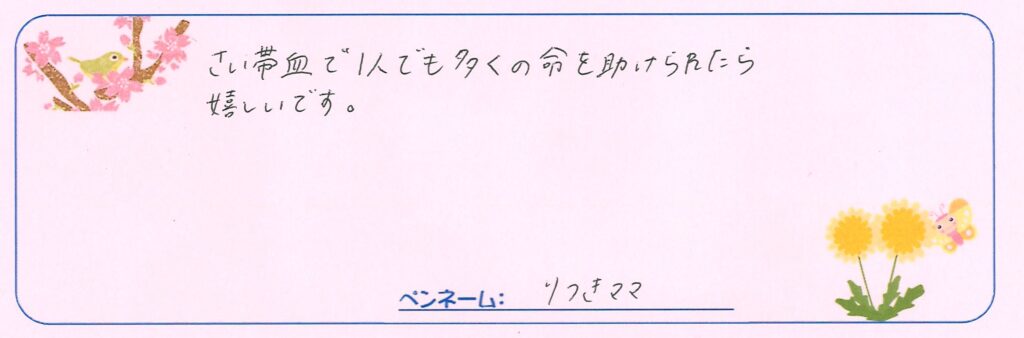 さい帯血で1人でも多くの命を助けられたら
嬉しいです。
ペンネーム: りつきママ